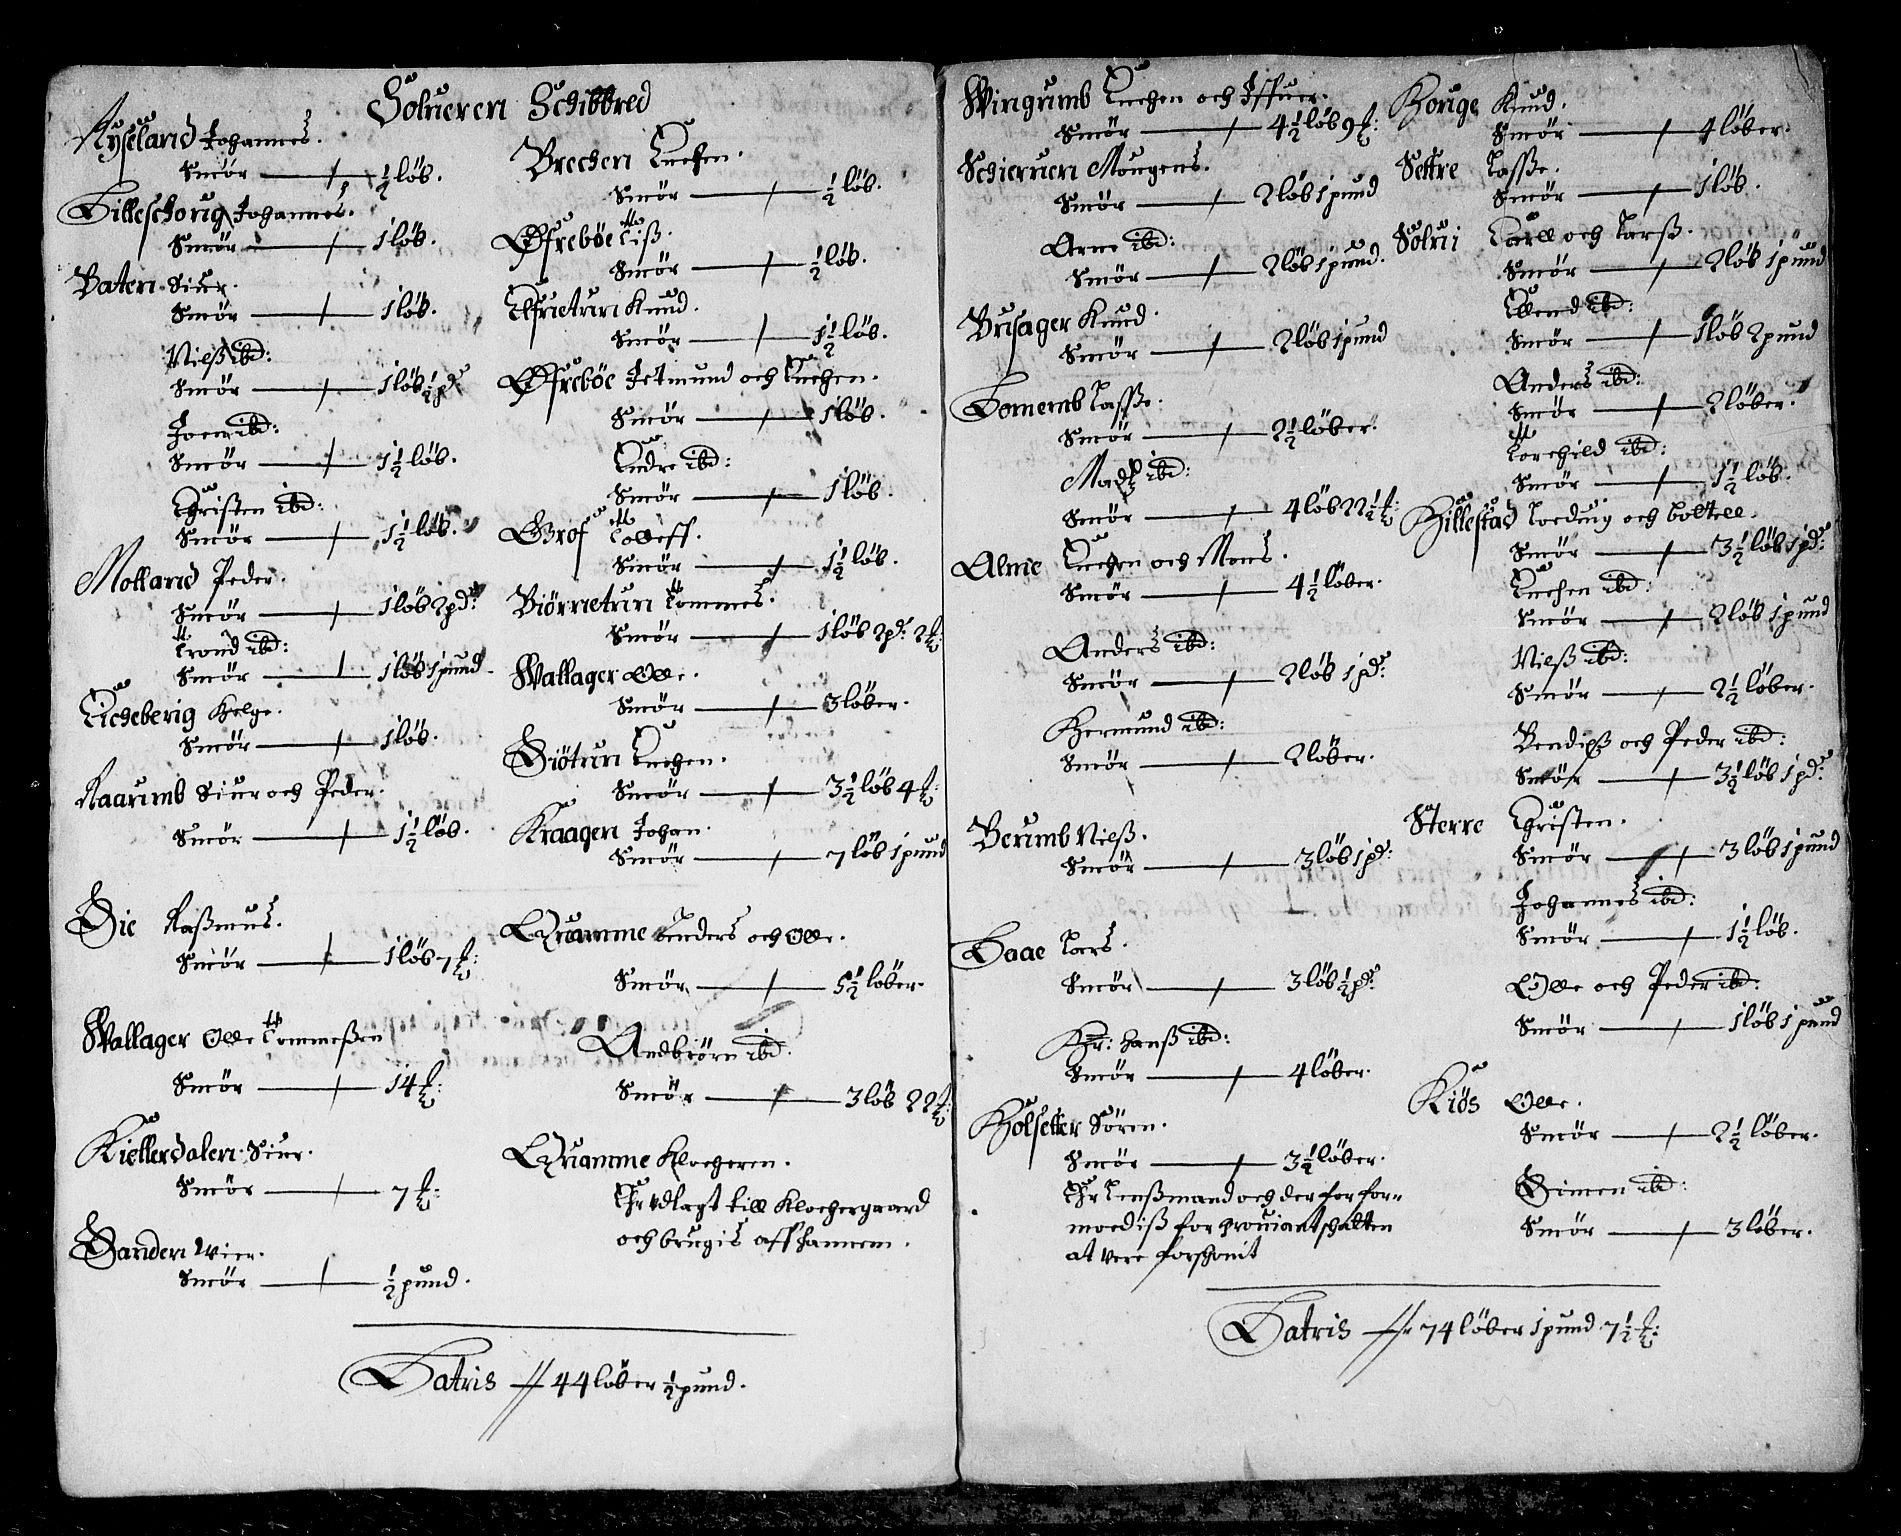 Solueren Schibbred
Nyseland Johannes.
Smör — ½ löb.
Lilleschorig Johannes.
Smör — 1 löb.
Baten Siur.
Smör — 1 löb.
Nielß ibd:
Smör — 1 löb ½ pd:
Joen ibd:
Smör — 1½ löb.
Christen ibd:
Smör — 1½ löb.
Molland Peder.
Smör — 1 löb 2 pd:
Trond ibd:
Smör — 1 löb 1 pund
Eicheberig Helge.
Smör — 1 löb.
Naarumb Siur och Peder.
Smör — 1½ löb.
Die Raßmus.
Smör — 1 löb 7 ℔:
Wallager Olle Tommeßen
Smör — 14 ℔:
Kiellerdalen Siur.
Smör — 7 ℔:
Sanden Wier.
Smör — ½ pund.
Brechen Enchen.
Smör — ½ löb.
Öfrebøe Tiß.
Smör — ½ löb.
Efrietun Knud.
Smör — 1½ löb.
Öfrebøe Jetmund och Enchen.
Smör — 1 löb.
Endre ibd:
Smör — 1 löb.
Grof Tolleff.
Smör — 1½ löb.
Biörnetun Tommes.
Smör — 1 löb 2 pd: 2 ℔
Wallager Olle.
Smör — 3 löber.
Siötun Enchen.
Smör — 3½ löb 4 ℔:
Kraagen Johan.
Smör — 7 löb 1 pund
Quamme Anders och Olle.
Smör — 5½ löber.
Andbiörn ibd.
Smör — 3 löb 22 ℔:
Quamme Klocheren.
Er udlagt till Klochergaard
och brugis aff hannem.
Latris 44 löber ½ pund.
Wingumb Enchen och Iffuer.
Smör — 4½ löb 9 ℔:
Schieruen Mougens.
Smör — 2 löb 1 pund
Arne ibd:
Smör — 2 löb 1 pund.
Brusager Knud.
Smör — 2 löb 1 pund
Lomemb Lasße.
Smör — 2½ löber.
Madß ibd:
Smör — 4 löb 22½ ℔:
Alme Enchen och Mons.
Smör — 4½ löber.
Anders ibd:
Smör — 2 löb 1 pd:
Hermund ibd:
Smör — 2 löber.
Berumb Nielß.
Smör — 3 löb 1 pd:
Haae Lars.
Smör — 3 löb ½ pd:
Hr: Hanß ibd:
Smör — 4 löber.
Holsetter Sören.
Smör — 3½ löber.
Er Lenßmand och der for for-
moediß for prouiantschatten
at vere forschonit
Houge Knud.
Smör — 4 löber.
Settre Lasße.
Smör — 1 löb.
Solui Carll och Larß.
Smör — 2 löb 1 pund
Ellend ibd:
Smör — 1 löb 2 pund
Anders ibd:
Smör — 2 löber.
Torchild ibd:
Smör — 1½ löb.
Hillestad Loduig och Bottell.
Smör — 3½ löb 1 pd:
Enchen ibd:
Smör — 2 löb 1 pund
Nielß ibd:
Smör — 2½ löber.
Bendiß och Peder ibd:
Smör — 3½ löb 1 pd:
Sterre Christen.
Smör — 3 löb 1 pund
Johannes ibd:
Smör — 1½ löb.
Olle och Peder ibd:
Smör — 1 löb 1 pund
Kiös Olle.
Smör — 2½ löber.
Simen ibd:
Smör — 3 löber.
Latris 74 löber 1 pund 7½ ℔: